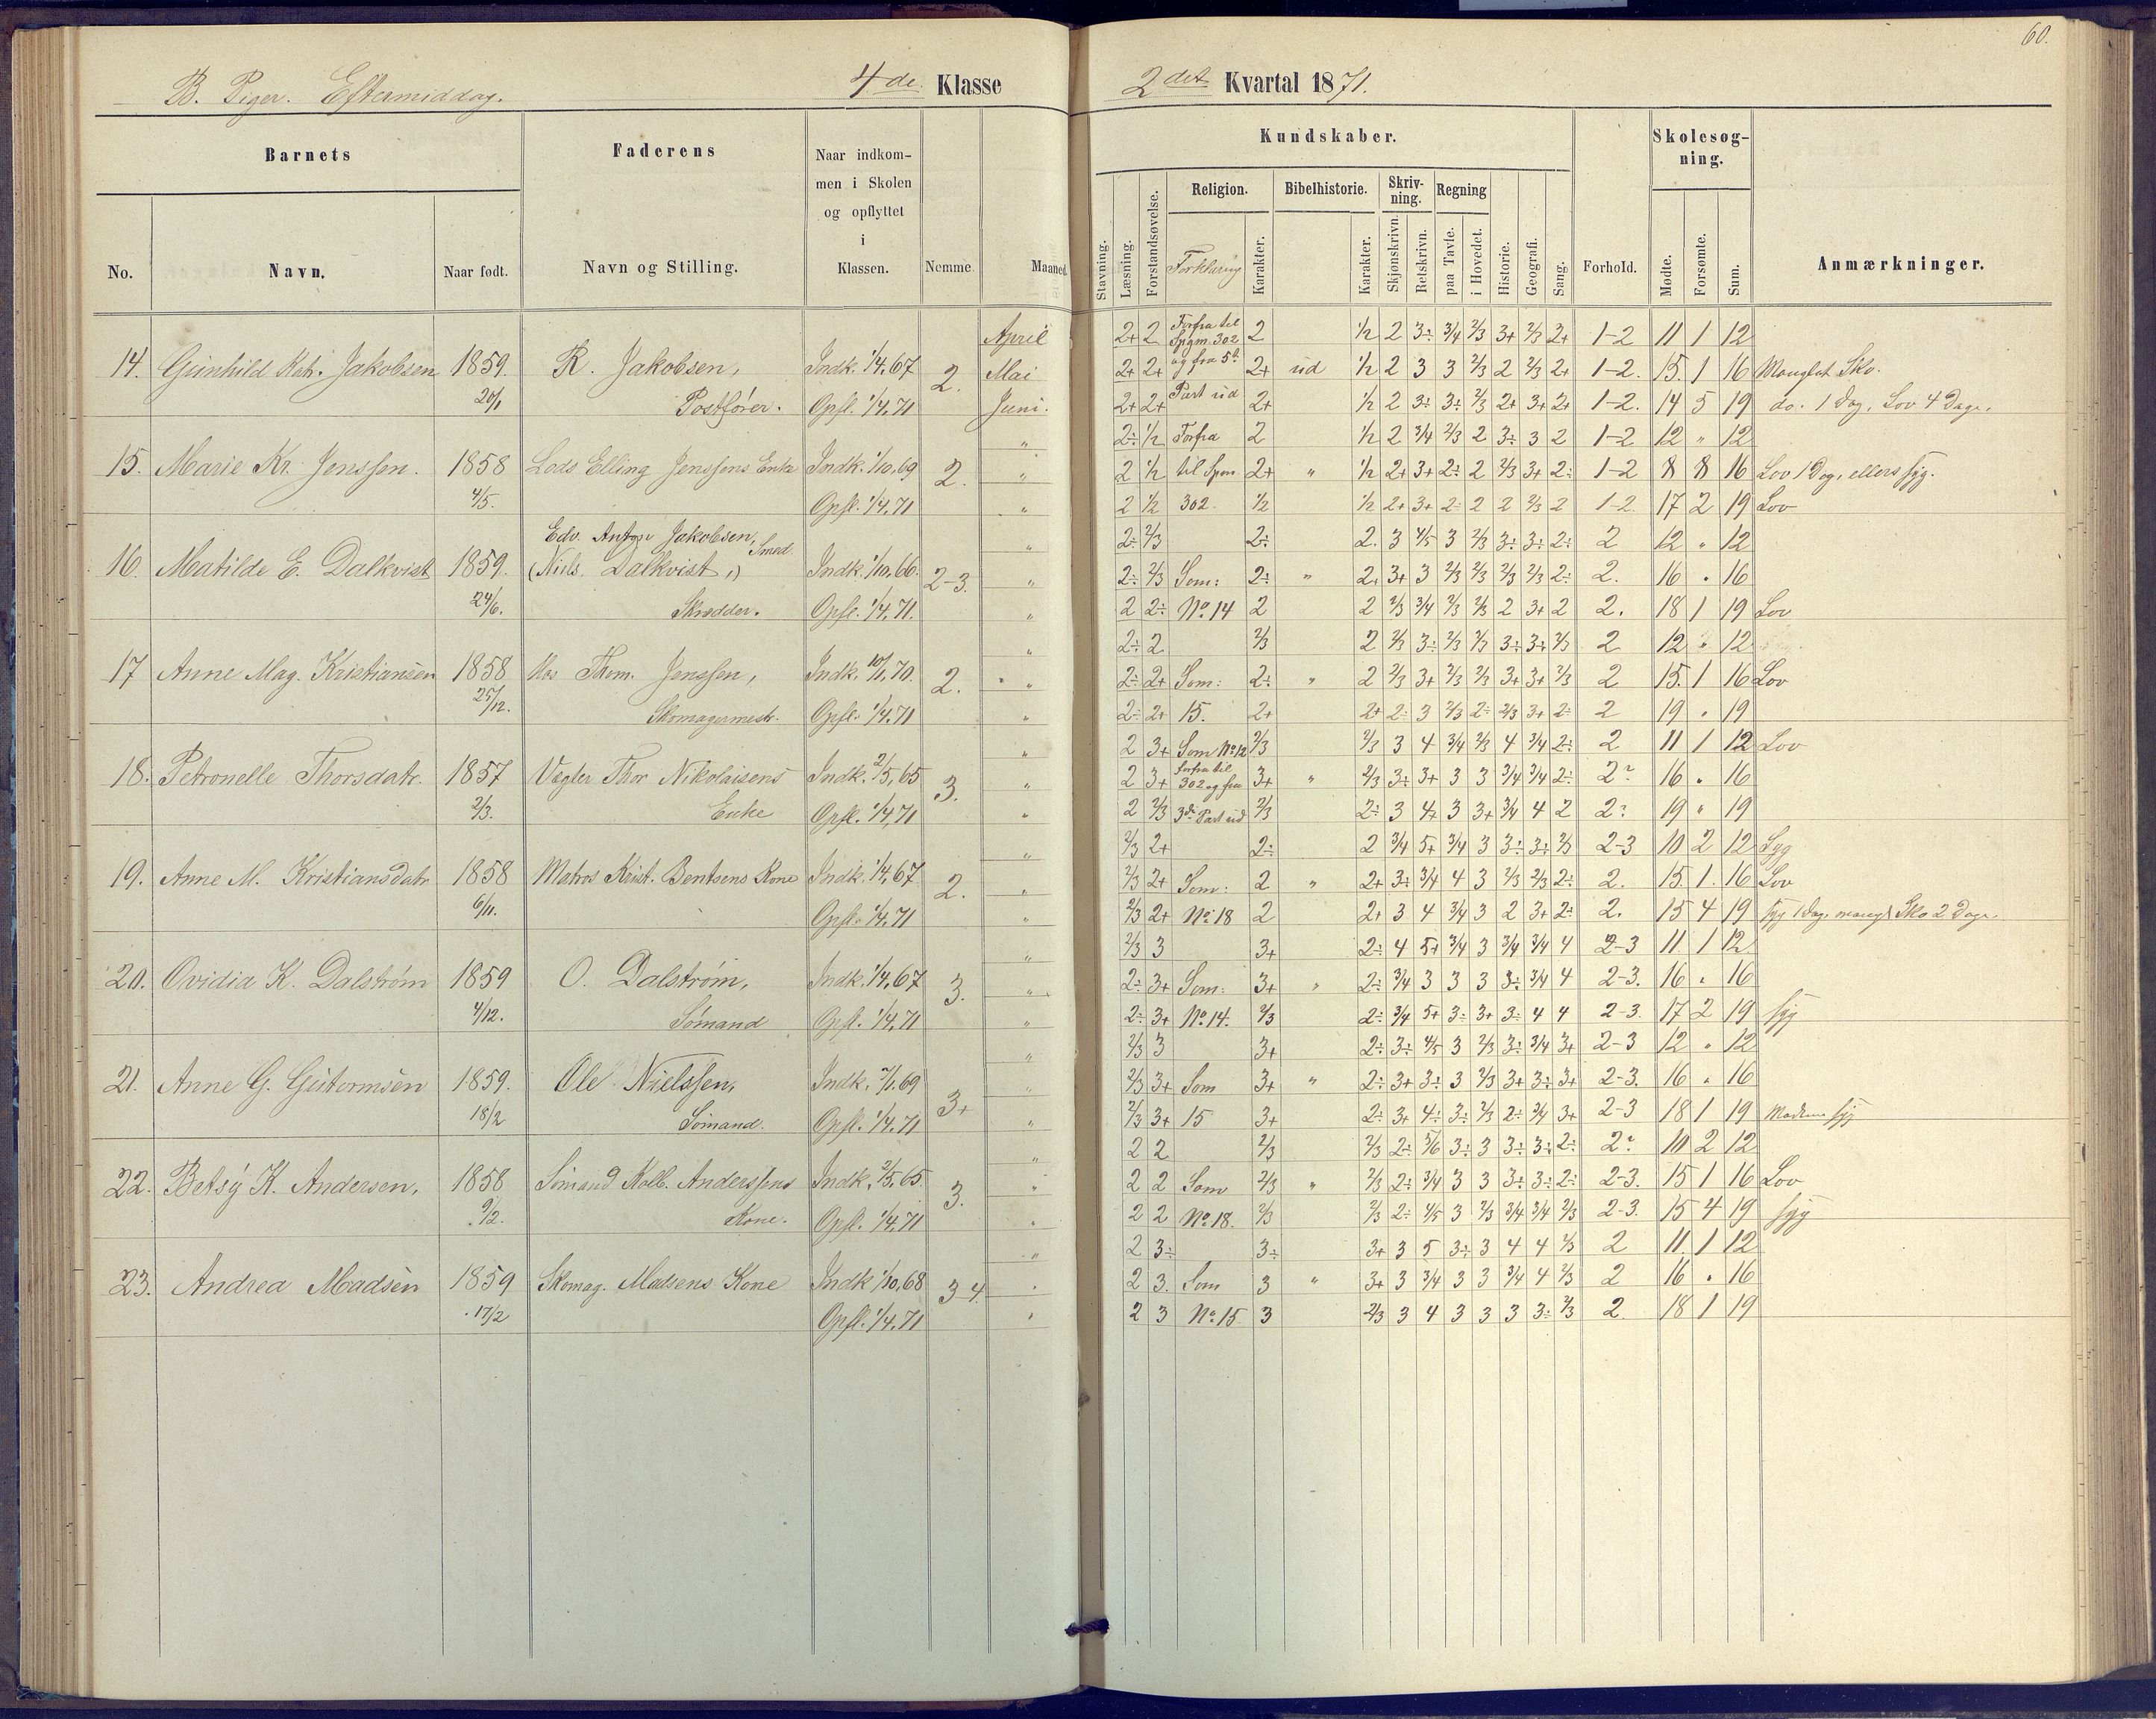 60.
B. Piger. Eftermiddag. 4de Klasse 2det Kvartal 1871.
Barnets Faderens Naar indkommen i Skolen og opflyttet i Klassen. Nemme. Maaned.
No. Navn. Naar født. Navn og Stilling.
Kundskaber. Skolesøgning.
Stavning. Læsning. Forstandsøvelse. Religion. Forklaring Karakter. Bibelhistorie. Karakter. Skrivning. Skjønskrivn. Retskrivn. Regning paa Tavle. i Hovedet. Historie. Geografi. Sang. Forhold. Mødte. Forsømte. Sum. Anmærkninger.
April 2+ 2 Forfra til Spgm. 302 2 1/2 2 3÷ 3/4 2/3 3+ 2/3 2+ 1-2 11 1 12
14. Gunhild Kath. Jakobsen 1859. R. Jakobsen, Indk. 1/4,67 2. Mai 2+ 2+ og fra 5te 2+ ud 1/2 2 3 3 2/3 2 2/3 2+ 1-2. 15. 1 16 Manglet Sko.
20/1 Postfører. Opfl. 1/4,71 Juni. 2+ 2+ Part ud 2+ 1/2 2 3÷ 3÷ 2/3 2+ 3+ 2+ 1-2. 14 5 19 do. 1 Dag, Lov 4 Dage.
" 2÷ 1/2 Forfra 2 1/2 2 3/4 2/3 2 3÷ 3 2 1-2 12 " 12
15. Marie Kr. Jenssen. 1858 Lods Elling Jenssens Enke Indk. 1/10,69 2. " 2 1/2 til Spm 2+ " 1/2 2+ 3+ 2÷ 2 2/3 3+ 2÷ 1-2 8 8 16 Lov 1 Dag, ellers syg.
4/5. Opfl. 1/4,71 " 2 1/2 302 1/2 1/2 2+ 3+ 2÷ 2 2 2/3 2 1-2 17 2 19 Lov
Edv. Anton Jakobsen, Smed " 2÷ 2/3 2÷ 2. 3 4/5 3 2/3 3÷ 3÷ 2÷ 2 12 " 12
16. Matilde E. Dalkvist 1859. (Niels Dalkvist,) Indk. 1/10,66. 2-3. " 2÷ 2/3 Som: 2÷ " 2. 3+ 3 2/3 2/3 2/3 2/3 2÷ 2. 16 " 16
24/6. Skrædder. Opfl. 1/4,71. " 2 2÷ No. 14 2 2 2/3 3/4 2/3 2/3 2 3+ 2 2. 18 1 19 Lov
" 2÷ 2 2/3 2 2/3 3÷ 2/3 2/3 3÷ 3÷ 2/3 2 12 " 12
17 Anne Mag. Kristiansen 1858 Hos Thom. Jenssen, Indk. 10/1,70. 2. " 2÷ 2+ Som: 2÷ " 2 2/3 3+ 2/3 2/3 3+ 3+ 2/3 2 15. 1 16 Lov
25/12. Skomagermestr. Opfl. 1/4,71 " 2÷ 2+ 15. 2+ 2+ 2÷ 3 2/3 2÷ 2/3 3+ 2÷ 2 19 " 19
" 2 3+ Som No. 12 2/3 2/3 3 4 3/4 2/3 4 3/4 2÷ 2 11 1 12 Lov
18. Petronelle Thorsdatr. 1857 Vægter Thor Nikolaisens Indk. 2/5,65 3. " 2 3+ forfra til 302 og fra 3+ " 2/3 3÷ 3+ 3 3 3/4 3/4 2÷ 2? 16 " 16
2/3. Enke Opfl. 1/4,71 " 2 2/3 3die Part ud 2/3 2÷ 3 4+ 3 3+ 3/4 4 2 2? 19 " 19
" 2/3 2+ 2÷ 2 3/4 5+ 3/4 3 3÷ 3÷ 2/3 2-3 10 2 12 Syg
19. Anne M. Kristiansdatr 1858 Matros Krist. Bentsens Kone Indk. 1/4,67 2. " 2/3 2+ Som: 2 " 2+ 3÷ 3/4 4 3 2/3 2/3 2÷ 2. 15. 1. 16 Lov
6/11. Opfl. 1/4,71 " 2/3 2+ No. 18 2 2+ 3 4 3/4 3 2 3+ 2÷ 2. 15 4 19 syg 1 Dag, mangl Sko 2 Dage.
" 2/3 3 3+ 2÷ 4 5+ 3/4 3 3/4 3/4 4 2-3 11 1 12
20. Ovidia K. Dalstrøm 1859 O. Dalstrøm, Indk. 1/4,67 3. " 2÷ 3+ Som: 3+ " 2÷ 3/4 3 3 3 3÷ 3/4 4 2-3. 16 " 16
4/12. Sømand Opfl. 1/4,71 " 2÷ 3+ No. 14. 2/3 2÷ 3/4 5+ 3÷ 3+ 3÷ 4 4 2-3. 17 2 19 syg
" 2/3 3 3+ 2÷ 3÷ 4/5 3 2/3 3÷ 3/4 3+ 2-3 12 " 12
21. Anne G. Guttormsen 1859. Ole Nielssen, Indk. 7/1.69 3+ " 2/3 3+ Som 3+ " 2÷ 3+ 3÷ 3 2/3 3+ 3÷ 3+ 2-3. 16 " 16
18/2 Sømand. Opfl. 1/4,71 " 2/3 3+ 15 3+ 2÷ 3+ 4÷ 3÷ 2/3 2÷ 3/4 3+ 2-3 18 1 19 Moderen syg
" 2 2 2/3 2/3 2÷ 5/6 3÷ 3 3÷ 3÷ 2÷ 2? 10 2 12
22. Betsy K. Andersen, 1858 Sømand Kolb. Anderssens Indk. 2/5,65. 3. " 2 2 Som 2/3 " 2/3 2÷ 3/4 3 3 3÷ 3÷ 2÷ 2-3. 15 1 16 Lov
9/12. Kone. Opfl. 1/4,71 " 2 2 No. 18. 2/3 2/3 2÷ 4/5 3 2/3 3/4 3/4 2/3 2-3. 15 4 19 syg
" 2 3÷ 3÷ 3+ 3 5 3÷ 3 4 4 2/3 2 11 1 12
23. Andrea Madsen 1859 Skomag. Madsens Kone Indk 1/10,68 3-4. " 2 3. Som 3 " 3+ 3 3/4 3 3 3/4 4 2/3 2 16 " 16
17/2 Opfl. 1/4,71 " 2 3 No. 15 3 2/3 3 4 3 3 3 3÷ 2/3 2. 18 1 19